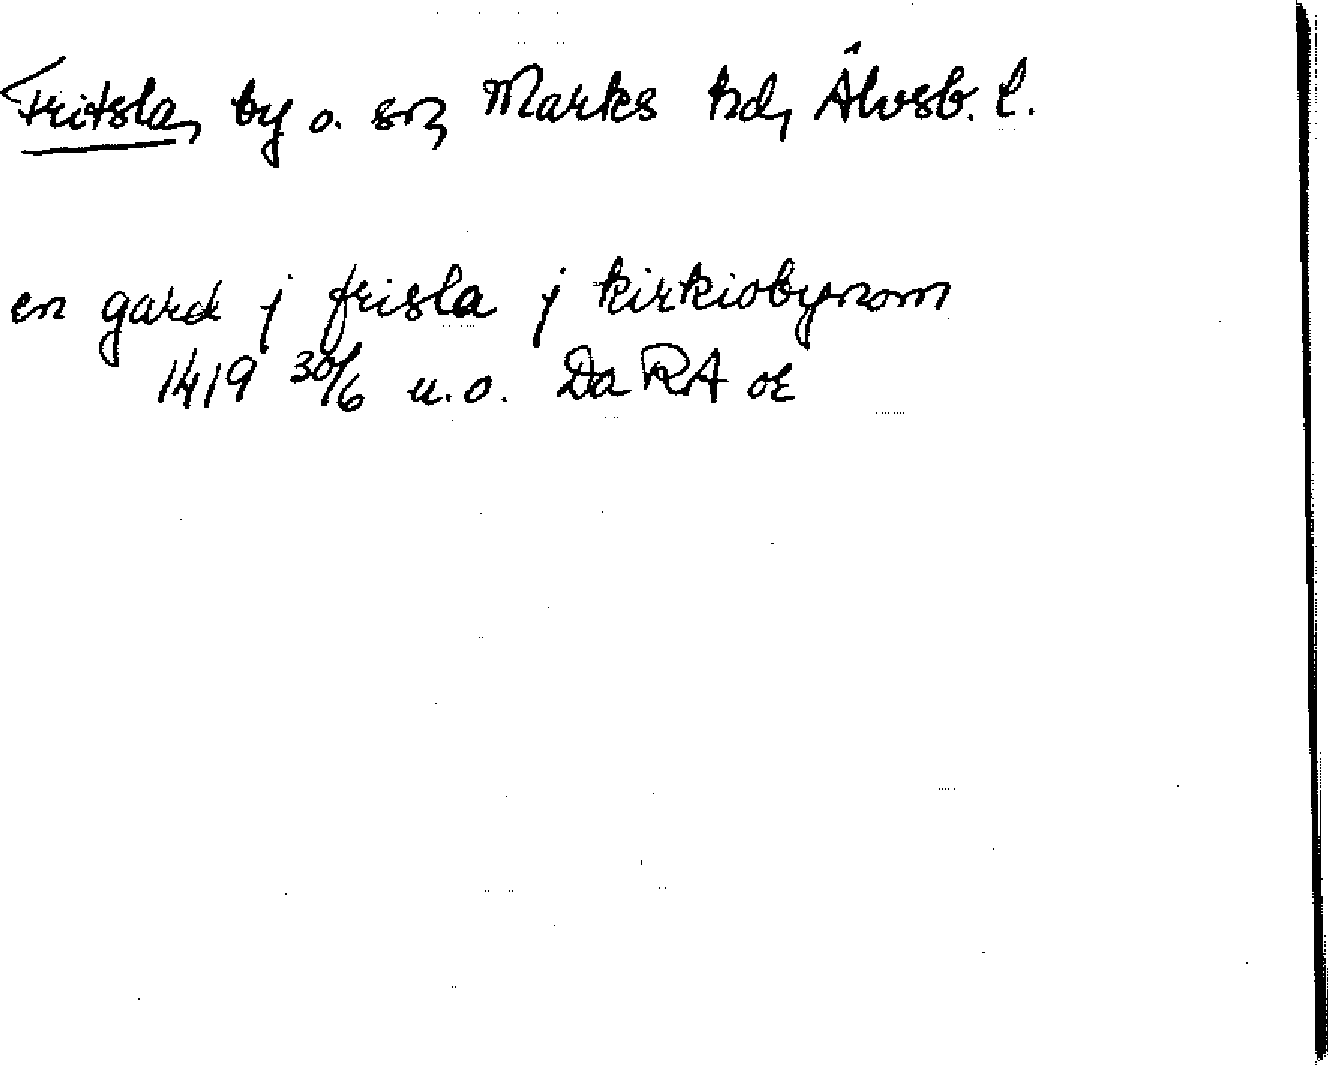 Fritsla, by o. sn, Marks hd, Älvsb. l.
en gard j frisla j kirkiobynom
1419 30/6 u.o. Da RA or